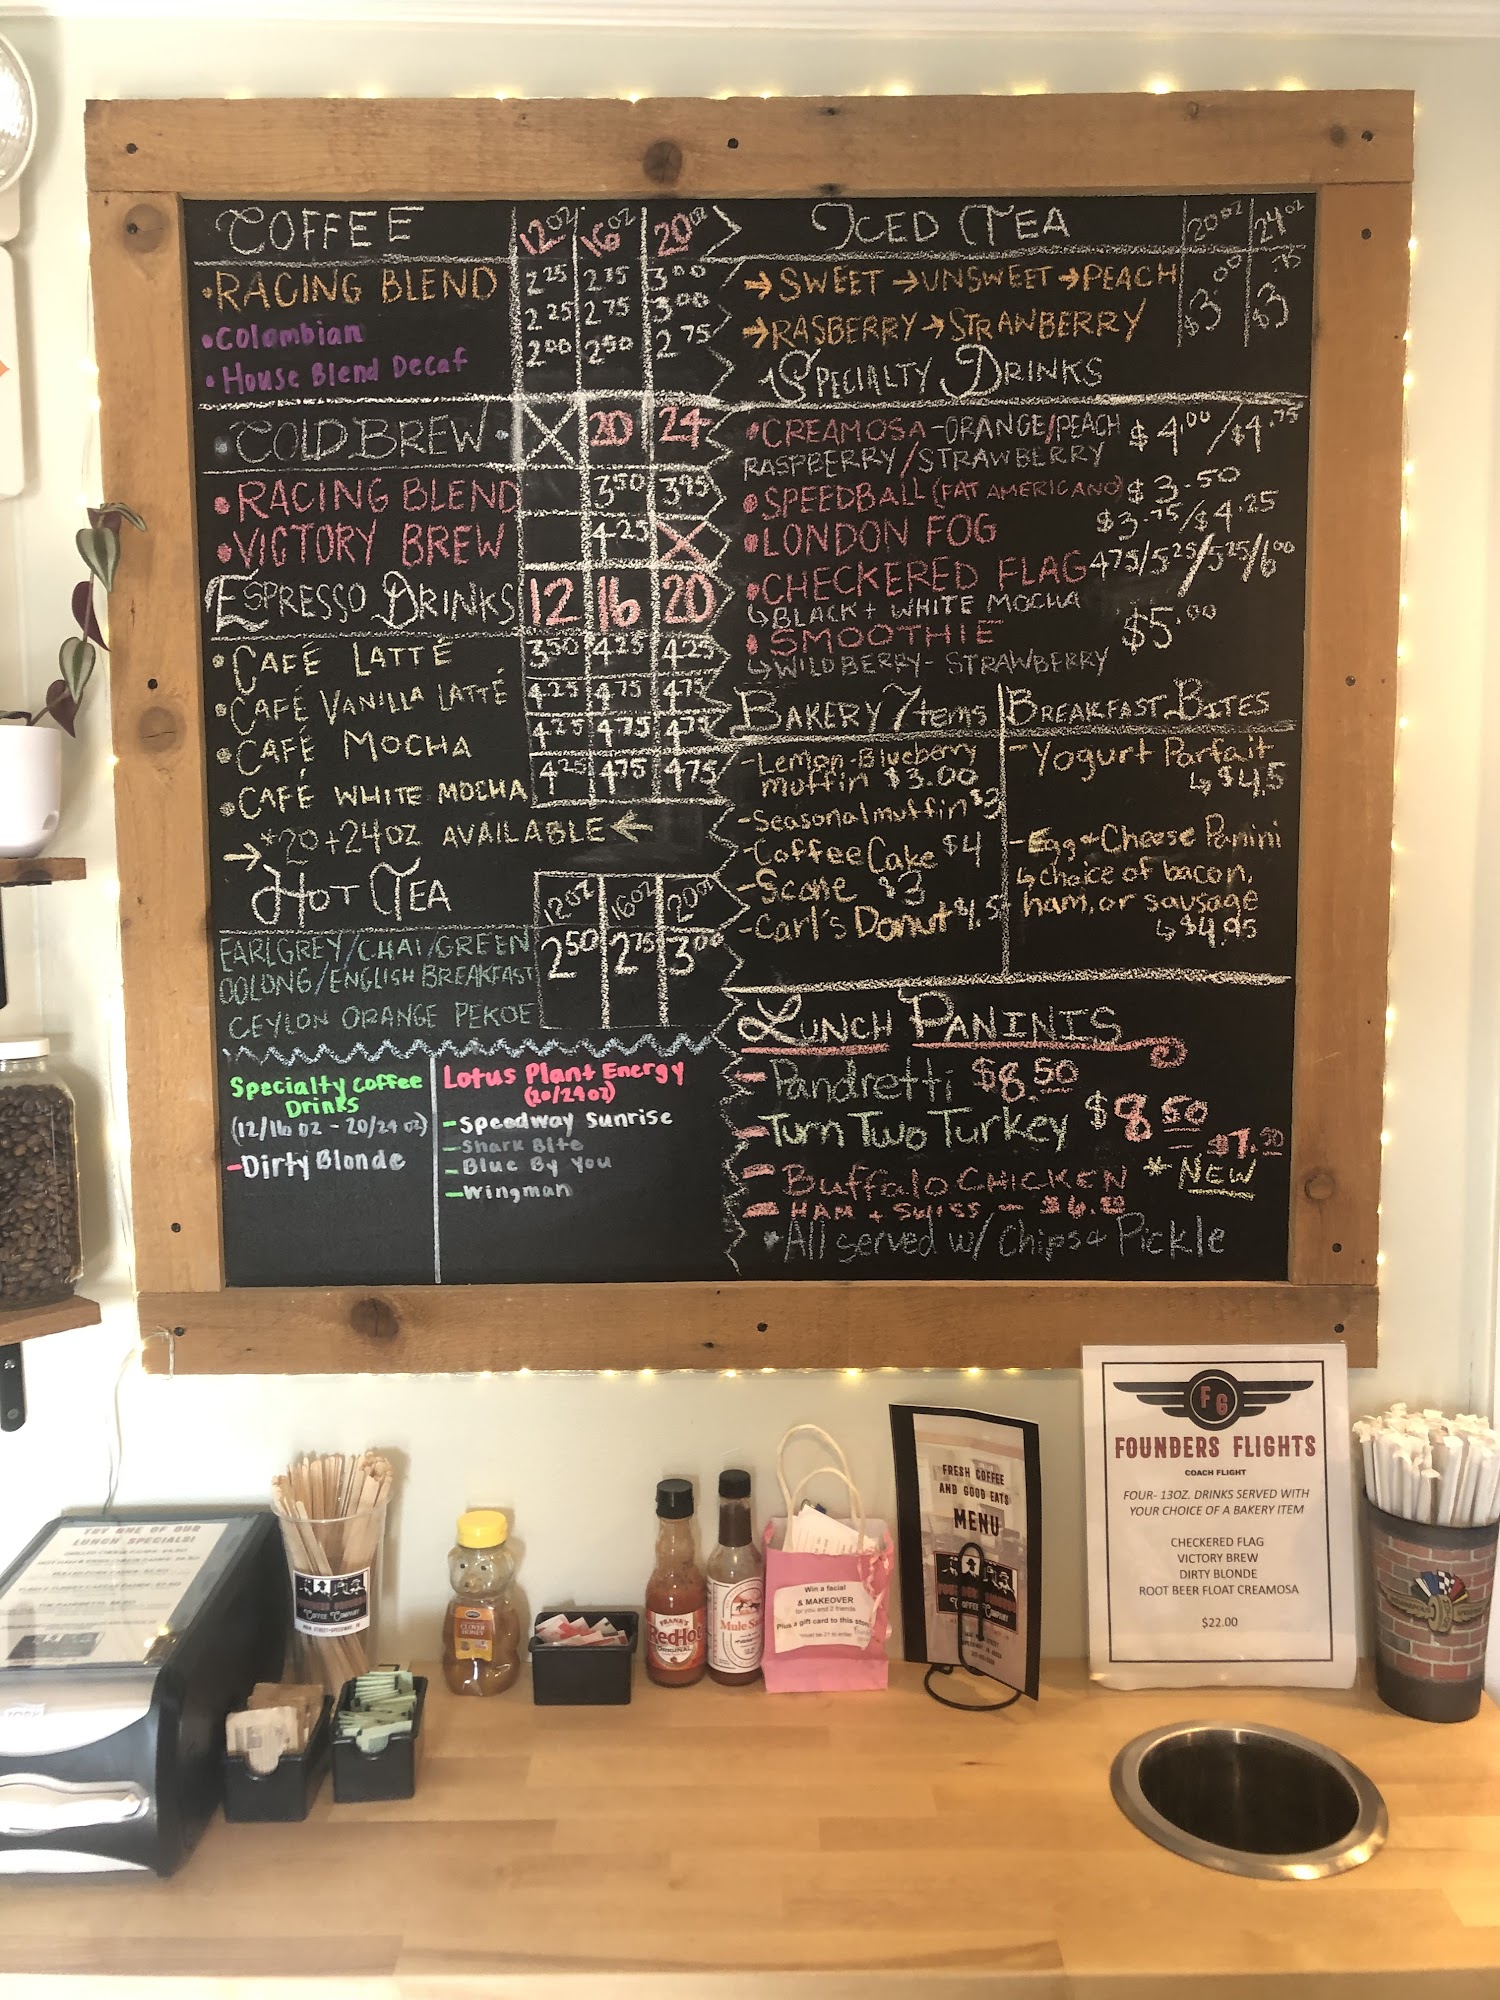 COFFEE 12OZ 16OZ 20OZ
•RACING BLEND 2 25 2 75 3 00
•Colombian 2 25 2 75 3 00
•House Blend Decaf 2 00 2 50 2 75
•COLD BREW• 20 24
•RACING BLEND 3 50 3 95
•VICTORY BREW 4.25
ESPRESSO DRINKS 12 16 20
•CAFÉ LATTÉ 3 50 4 25 4 25
•CAFÉ VANILLA LATTÉ 4 25 4 75 4 75
•CAFÉ MOCHA 4 25 4 75 4 75
•CAFÉ WHITE MOCHA 4 25 4 75 4 75
→ *20+24OZ AVAILABLE ←
HOT TEA 12OZ 16OZ 20OZ
EARLGREY/CHAI/GREEN 2 50 2 75 3 00
OOLONG/ENGLISH BREAKFAST
CEYLON ORANGE PEKOE
Specialty Coffee
Drinks
(12/16 oz - 20/24 oz)
-Dirty Blonde
Lotus Plant Energy
(20/24oz)
-Speedway Sunrise
-Shark Bite
-Blue By You
-Wingman
ICED TEA 20OZ 24OZ
→SWEET →UNSWEET →PEACH $3.00 $3.75
→RASBERRY →STRAWBERRY
SPECIALTY DRINKS
•CREAMOSA-ORANGE/PEACH $4.00/$4.75
RASPBERRY/STRAWBERRY
•SPEEDBALL (FAT AMERICANO) $3.50
•LONDON FOG $3.75/$4.25
•CHECKERED FLAG 4 75/5 25/5 25/6 00
↳BLACK + WHITE MOCHA
•SMOOTHIE $5.00
↳WILDBERRY- STRAWBERRY
BAKERY ITEMS
-Lemon-Blueberry
muffin $3.00
-Seasonal muffin $3
-Coffee Cake $4
-Scone $3
-Carl's Donut $1.5
BREAKFAST BITES
-Yogurt Parfait
↳$4.5
-Egg + Cheese Panini
↳choice of bacon,
ham, or sausage
↳$4.95
LUNCH PANINIS
-Pandretti $8.50
-Turn Two Turkey $8 50
-BUFFALO CHICKEN *NEW
-HAM + SWISS -
*All served w/ Chips + Pickle
TRY ONE OF OUR
LUNCH SPECIALS!
COFFEE COMPANY
CLOVER
HONEY
FRANK'S
RedHot
ORIGINAL
Win a facial
& MAKEOVER
for you and 2 friends
Plus a gift card to this store
FRESH COFFEE
AND GOOD EATS
MENU
COFFEE COMPANY
FG
FOUNDERS FLIGHTS
COACH FLIGHT
FOUR- 13OZ. DRINKS SERVED WITH
YOUR CHOICE OF A BAKERY ITEM
CHECKERED FLAG
VICTORY BREW
DIRTY BLONDE
ROOT BEER FLOAT CREAMOSA
$22.00